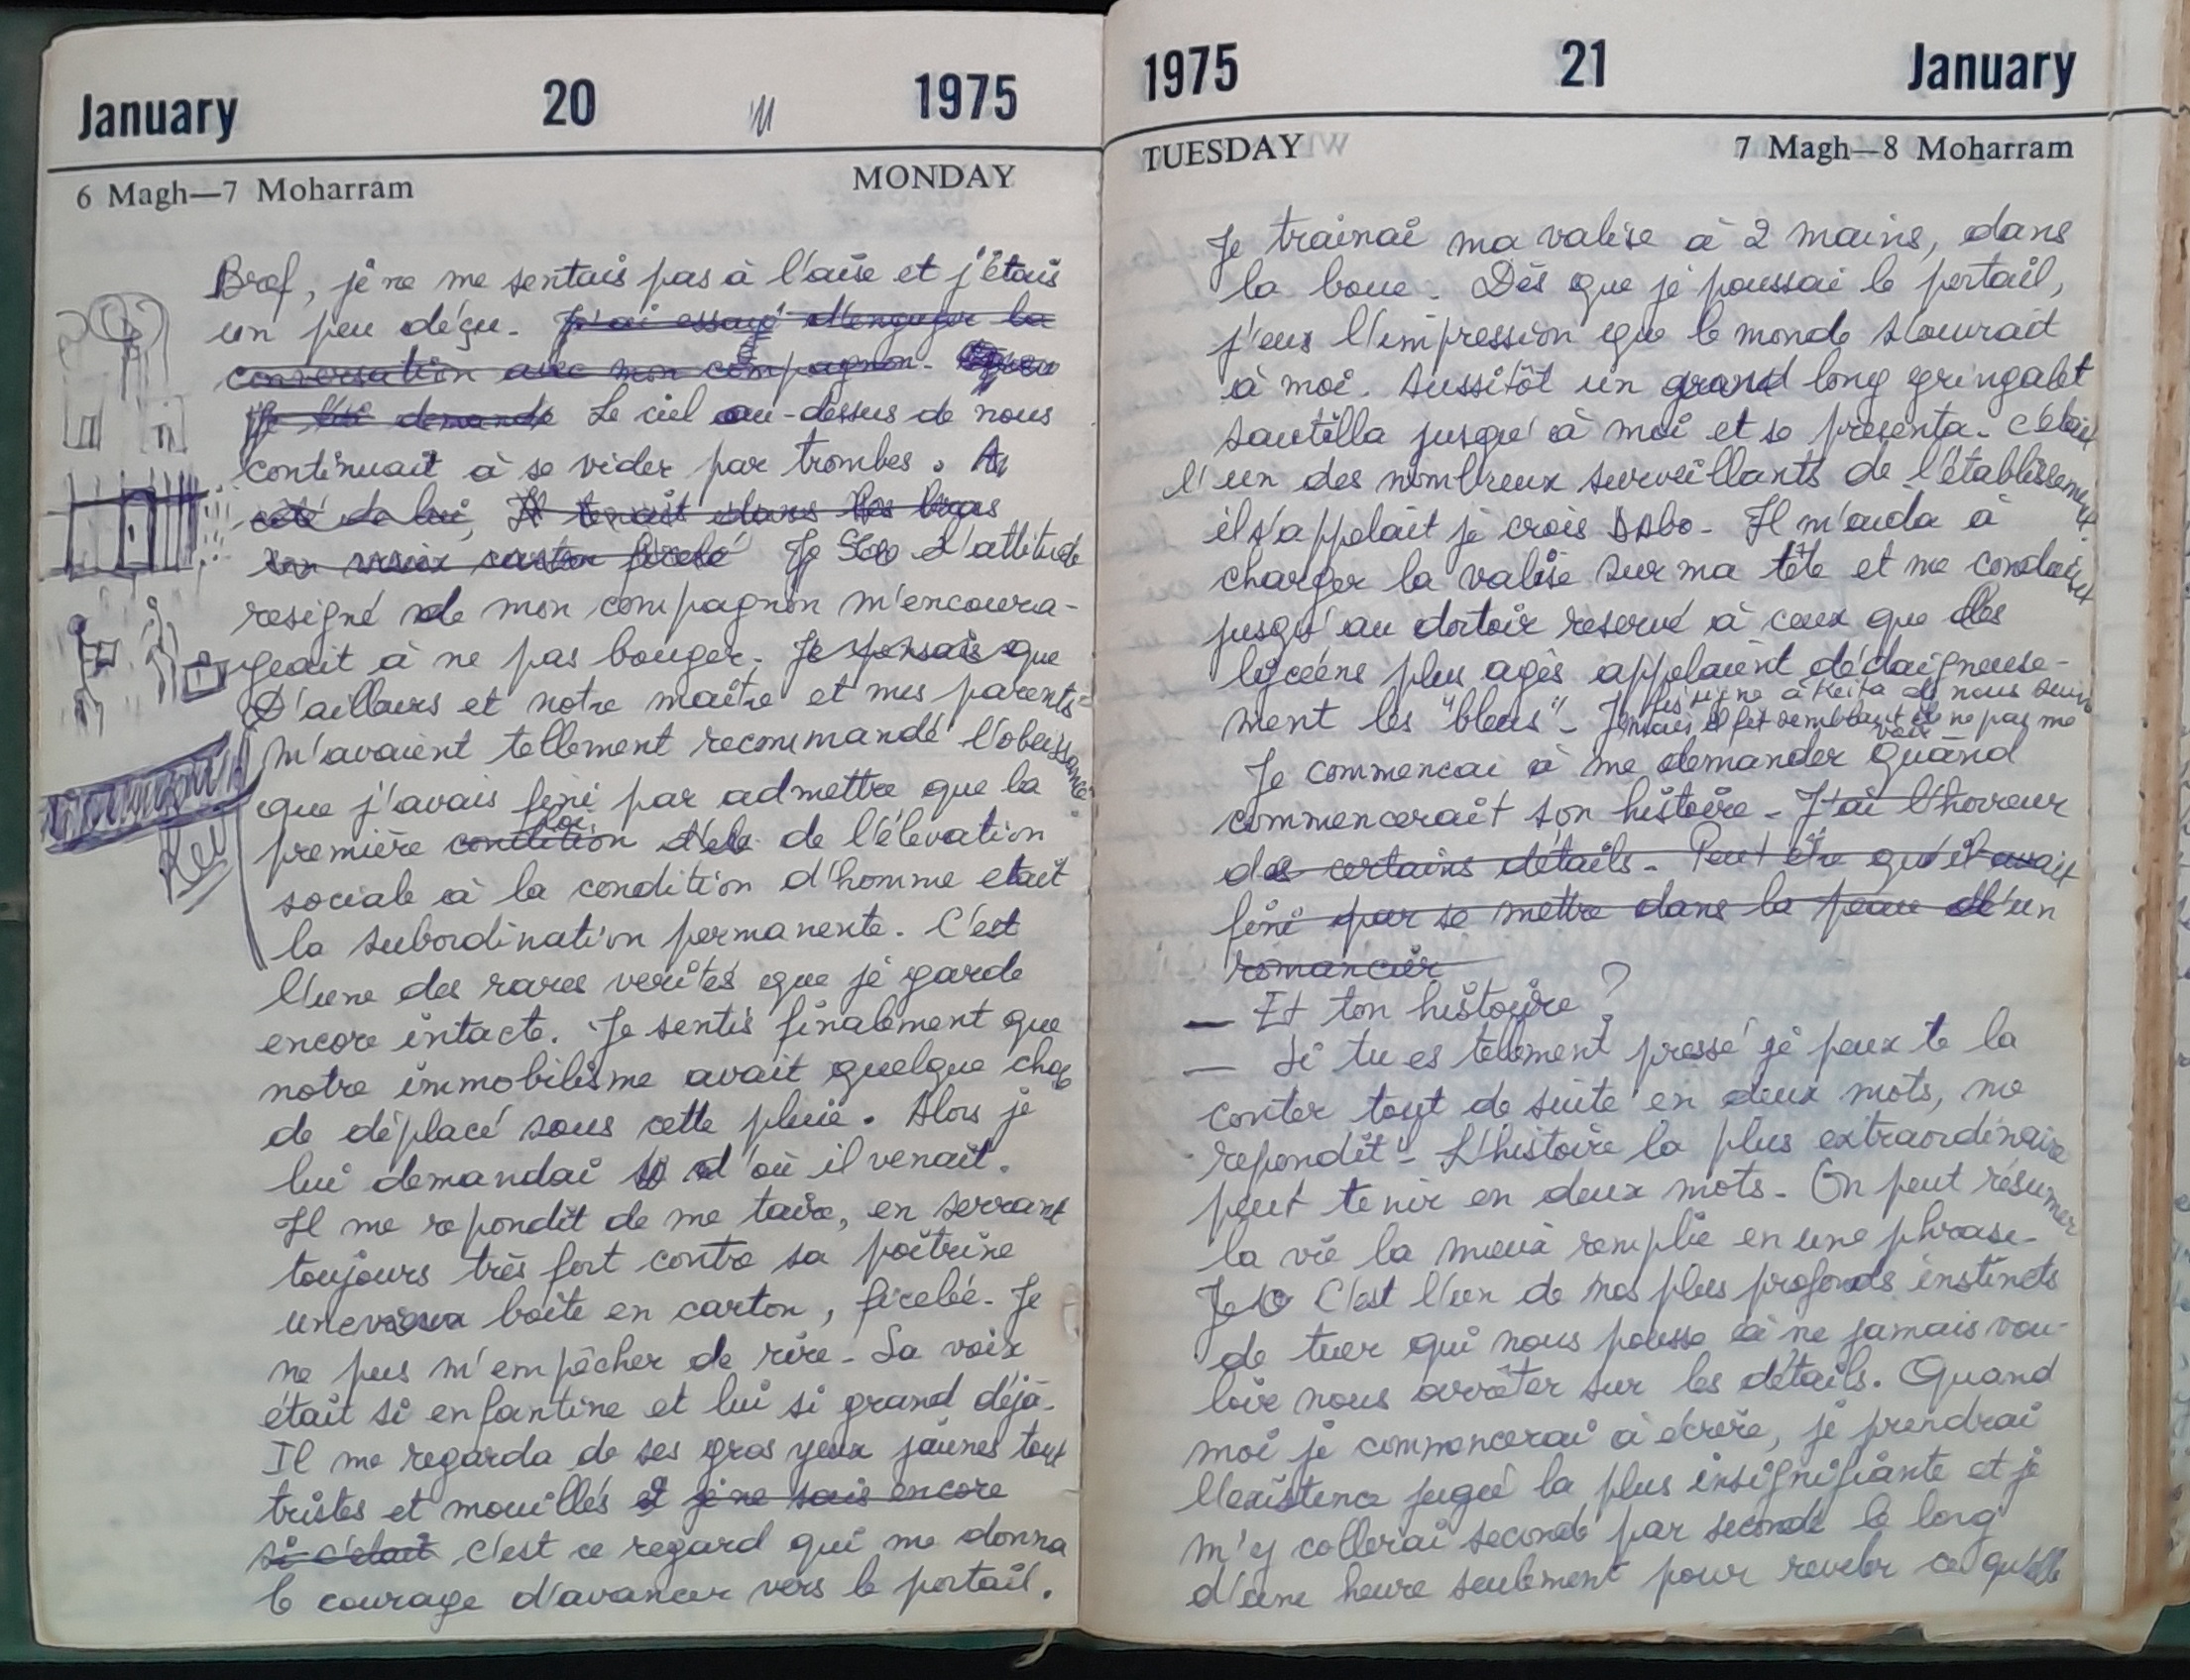 January 20 1975
6 Magh—7 Moharram MONDAY
Bref, je ne me sentais pas à l'aise et j'étais
un peu déçu. J'ai essayé d'engager la
conversation avec mon compagnon.
Je lui demande Le ciel au-dessus de nous
continuait à se vider par trombes. A
côté de lui, Il tenait dans les bras
son vieux carton ficelé Je L'attitude
resigné de mon compagnon m'encoura-
geait à ne pas bouger. Je pensais que
D'ailleurs et notre maître et mes parents
m'avaient tellement recommandé l'obeissance
que j'avais fini par admettre que la
première condition loi de l'élevation
sociale à la condition d'homme etait
la subordination permanente. C'est
l'une des rares verités que je garde
encore intacte. Je sentis finalement que
notre immobilisme avait quelque chose
de déplacé sous cette pluie. Alors je
lui demandai d'où il venait.
Il me repondit de me taire, en serrant
toujours très fort contre sa poitrine
une vieux boite en carton, ficelée. Je
ne pus m'empêcher de rire. Sa voix
était si enfantine et lui si grand déjà.
Il me regarda de ses gros yeux jaunes tout
tristes et mouillés et je ne sais encore
si c'était c'est ce regard qui me donna
le courage d'avancer vers le portail.
1975 21 January
TUESDAY 7 Magh—8 Moharram
Je trainai ma valise à 2 mains, dans
la boue. Dès que je poussai le portail,
j'eus l'impression que le monde s'ouvrait
à moi. Aussitôt un grand long gringalet
sautilla jusqu'à moi et se presenta. C'était
l'un des nombreux surveillants de l'établissement.
il s'appelait je crois Dabo. Il m'aida à
charger la valise sur ma tête et me conduisit
jusqu'au dortoir reservé à ceux que des
lycéens plus agés appelaient dédaigneuse-
ment les "bleus". Je fis signe à Keita de nous suivre
mais il fit semblant de ne pas me
voir
Je commencai à me demander quand
commencerait son histoire. J'ai l'horreur
des certains détails. Peut être qu'il avait
fini par se mettre dans la peau d'un
romancier
— Et ton histoire ?
— Si tu es tellement pressé je peux te la
conter tout de suite en deux mots, me
repondit. L'histoire la plus extraordinaire
peut tenir en deux mots. On peut résumer
la vie la mieux remplie en une phrase.
Je C'est l'un de nos plus profonds instincts
de tuer qui nous pousse à ne jamais vou-
loir nous arrêter sur les détails. Quand
moi je commencerai à écrire, je prendrai
l'existence jugée la plus insignifiante et je
m'y collerai seconde par seconde le long
d'une heure seulement pour reveler ce qu'elle